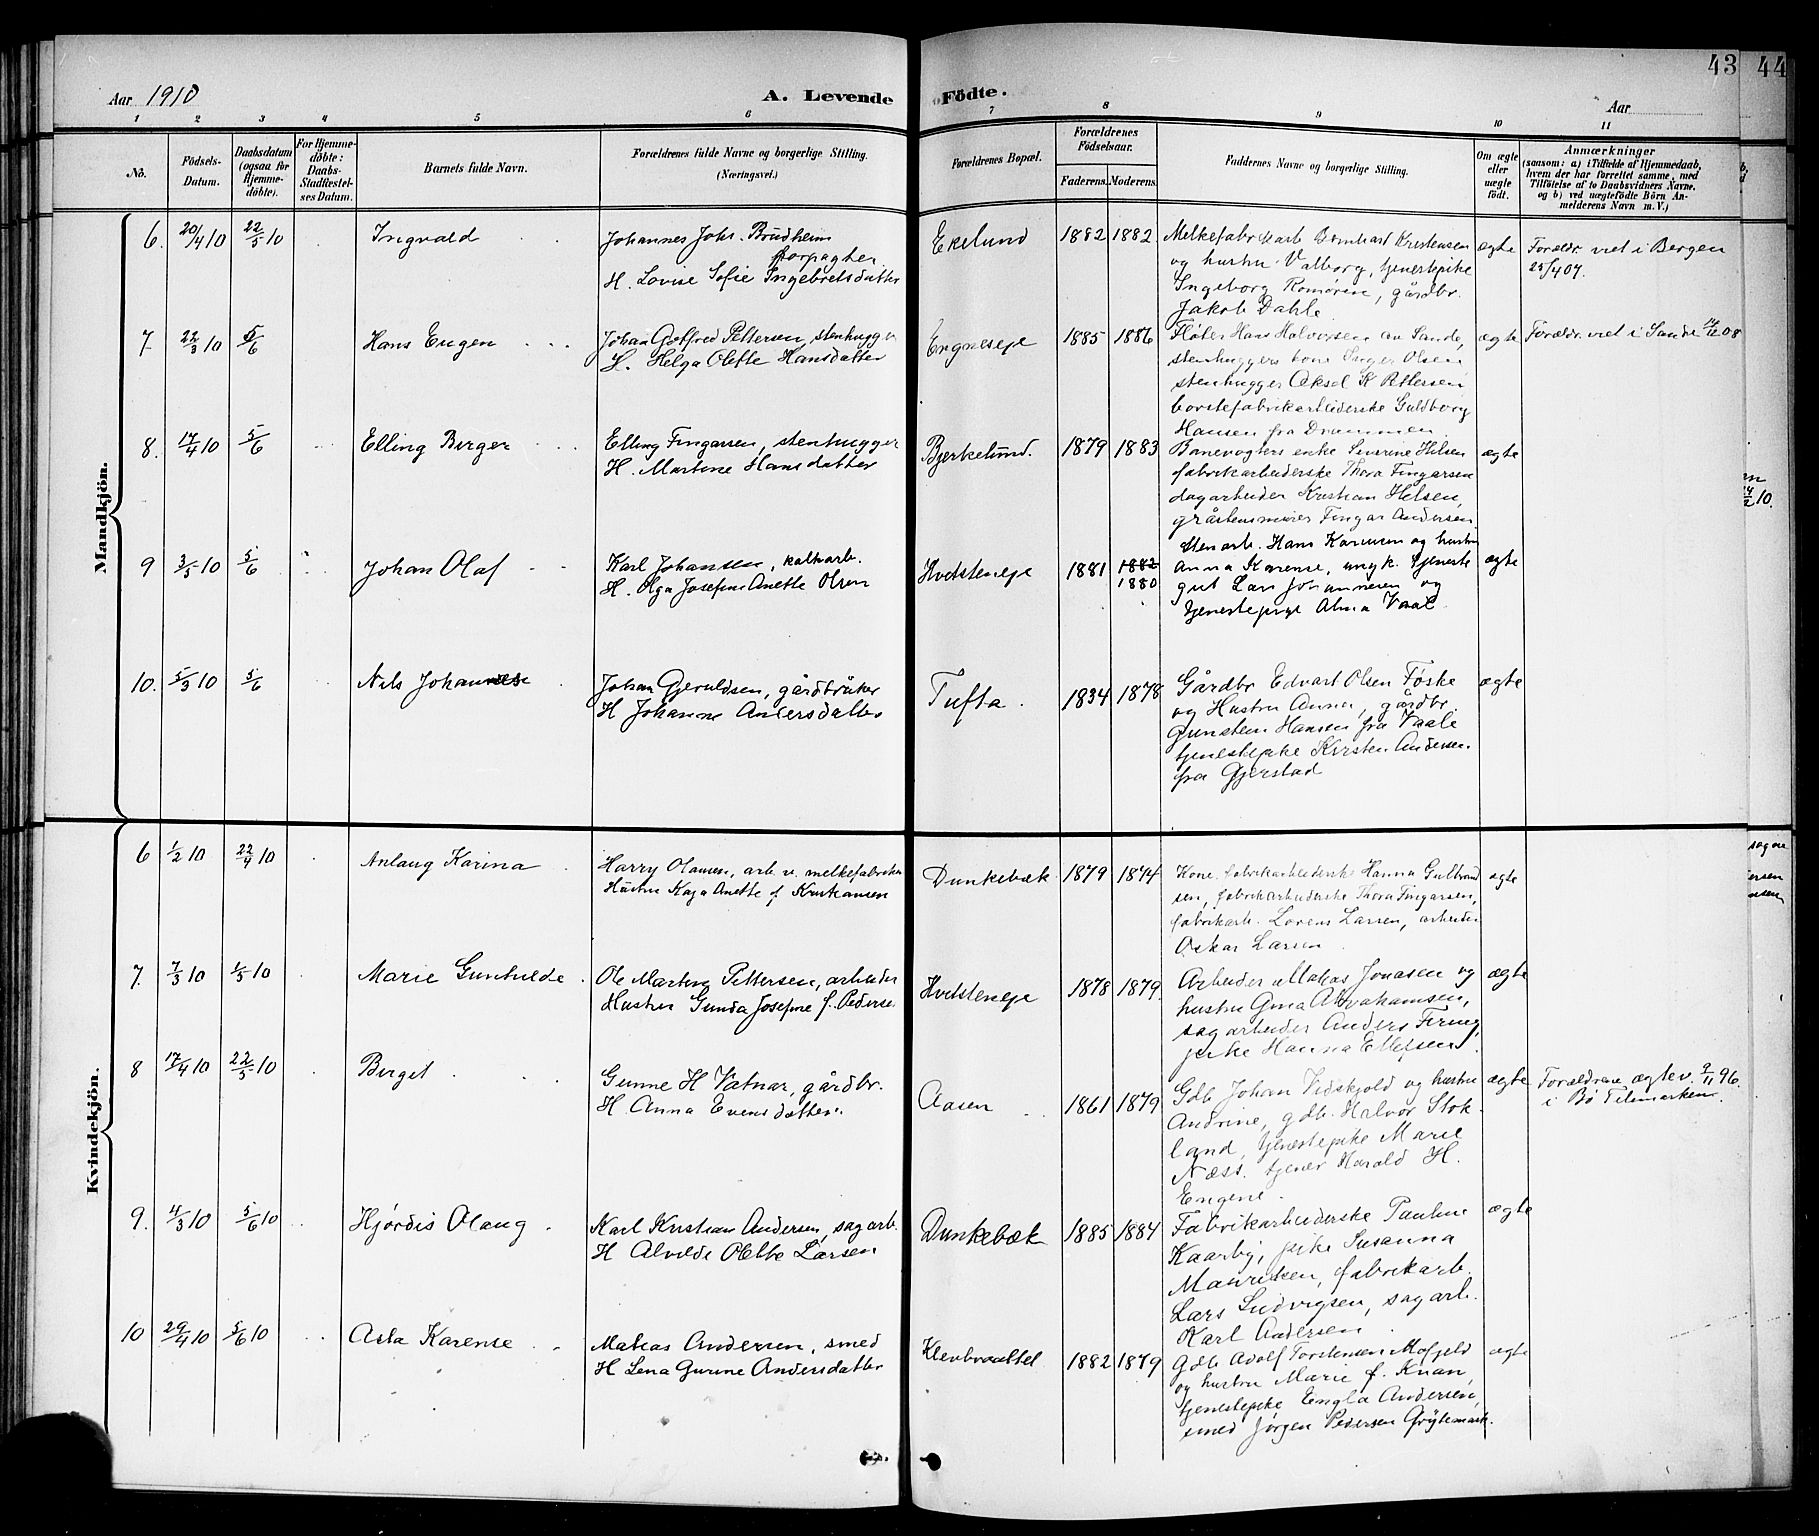 43
44
Aar 1910
A. Levende
Födte.
Aar
1 2 3 4 5 6 7 8 9 10 11
No.
Födsels-
Datum.
Daabsdatum
(ogsaa for
Hjemme-
döbte).
For Hjemme-
döbte:
Daabs-
Stadfæstel-
ses Datum.
Barnets fulde Navn.
Forældrenes fulde Navne og borgerlige Stilling.
(Næringsvei.)
Forældrenes Bopæl.
Forældrenes
Födselsaar.
Faderens.
Moderens.
Faddernes Navne og borgerlige Stilling.
Om ægte
eller
uægte
födt.
Anmærkninger
(saasom: a) i Tilfælde af Hjemmedaab,
hvem der har forrettet samme, med
Tilföielse af to Daabsvidners Navne.
og b) ved uægtefödte Börn An-
melderens Navn m. V.)
Mandkjön.
6. 20/4 10 22/5 10 Ingvald
Johannes Johs. Brudheim
forpagter
H. Lovise Sofie Ingebretsdatter
Ekelund 1882 1882
Melkefabrikarb Bernhart Kristensen
og hustru Valborg, tjenestepike
Ingeborg Romören, gårdbr.
Jakob Dahle
ægte
Forældr. viet i Bergen
25/4 07.
7. 22/3 10 5/6 Hans Eugen
Johan Gotfred Pettersen, stenhugger
H. Helga Olette Hansdatter
Engneseje 1885 1886
Fløter Hans Halvorsen av Sande,
stenhuggers kone Inger Olsen
stenhugger Aksel K Pettersen
borstefabrikarbeiderske Guldborg
Hansen fra Drammen
ægte
Forældr. viet i Sande 08
8. 17/4 10 5/6 Elling Birger
Elling Fingarsen, stenhugger
H. Martine Hansdatter
Bjerkelund. 1879 1883
Banevogters enke Severine Helsen
fabrikarbeiderske Thora Fingarsen
dagarbeider Kristian Helsen,
gråstensmurer Fingar Andersen.
ægte
9 3/5 10 5/6 Johan Olaf
Karl Johansen, kalkarb.
H. Olga Josefine Anette Olsen
Hvitsteneje 1881 1882
1880
Stenarb. Hans Karensen og hustru
Anna Karense, ungk. tjeneste
gut Lars Johannesen og
tjenestepige Alma Vaal
ægte
10. 5/3 10 5/6 Nils Johannes
Johan Gjeruldsen, gårdbruker
H Johanne Andersdatter
Tufta. 1834 1878
Gårdbr Edvart Olsen Føske
og Hustru Anna, gårdbr.
Gunstein Hansen fra Vaale
tjenestepike Kirsten Andersen.
fra Gjerstad
ægte
Kvindekjön.
6 1/2 10 22/4 10 Anlaug Karina
Harry Olausen, arb. v. melkefabriken
Hustru Kaja Anette f. Kristiansen
Dunkebæk 1879 1874
Kone fabrikarbeiderske Hanna Gulbrand
sen, fabrikarbeiderske Thora Fingarsen,
fabrikarb. Lorens Larsen, arbeider
Oskar Larsen
ægte
7. 7/3 10 1/5 10 Marie Gunhilde
Ole Martin Pettersen, arbeider
Hustru Gunda Josefine f. Pederse
Hvitsteneje 1878 1879
Arbeider Matias Jonasen og
hustru Gina Abrahamsen,
sagarbeider Anders Firing,
pike Hanna Ellefsen
ægte
8 17/4 10 22/5 10 Birgit
Gunne H Vatnar, gårdbr.
H. Anna Evensdatter
Aasen 1861 1879
Gdb. Johan Vidskjold og hustru
Andrine, gdb. Halvor Stok-
land, tjenestepike Marie
Næss. tjener Harald H.
Engene.
ægte
Forældrene ægtev. 9/11 96.
i Bø Telemarken
9. 4/3 10 5/6 10 Hjørdis Olaug
Karl Kristian Andersen, sagarb.
H Alvilde Olette Larsen
Dunkebæk 1885 1884
Fabrikarbeiderske Pauline
Kaarby, pike Susanna
Mauritsen, fabrikarb.
Lars Ludvigsen, sagarb.
Karl Andersen
ægte
10 29/4 10 5/6 10 Asta Karense
Matias Andersen, smed
H Lena Gurine Andersdatter
Klevbraattel 1882 1879
Gdb Adolf Torstensen Mofjeld
og hustru Marie f. Knan,
tjenestepike Engla Andersen,
smed Jørgen Pedersen Grytemark.
ægte